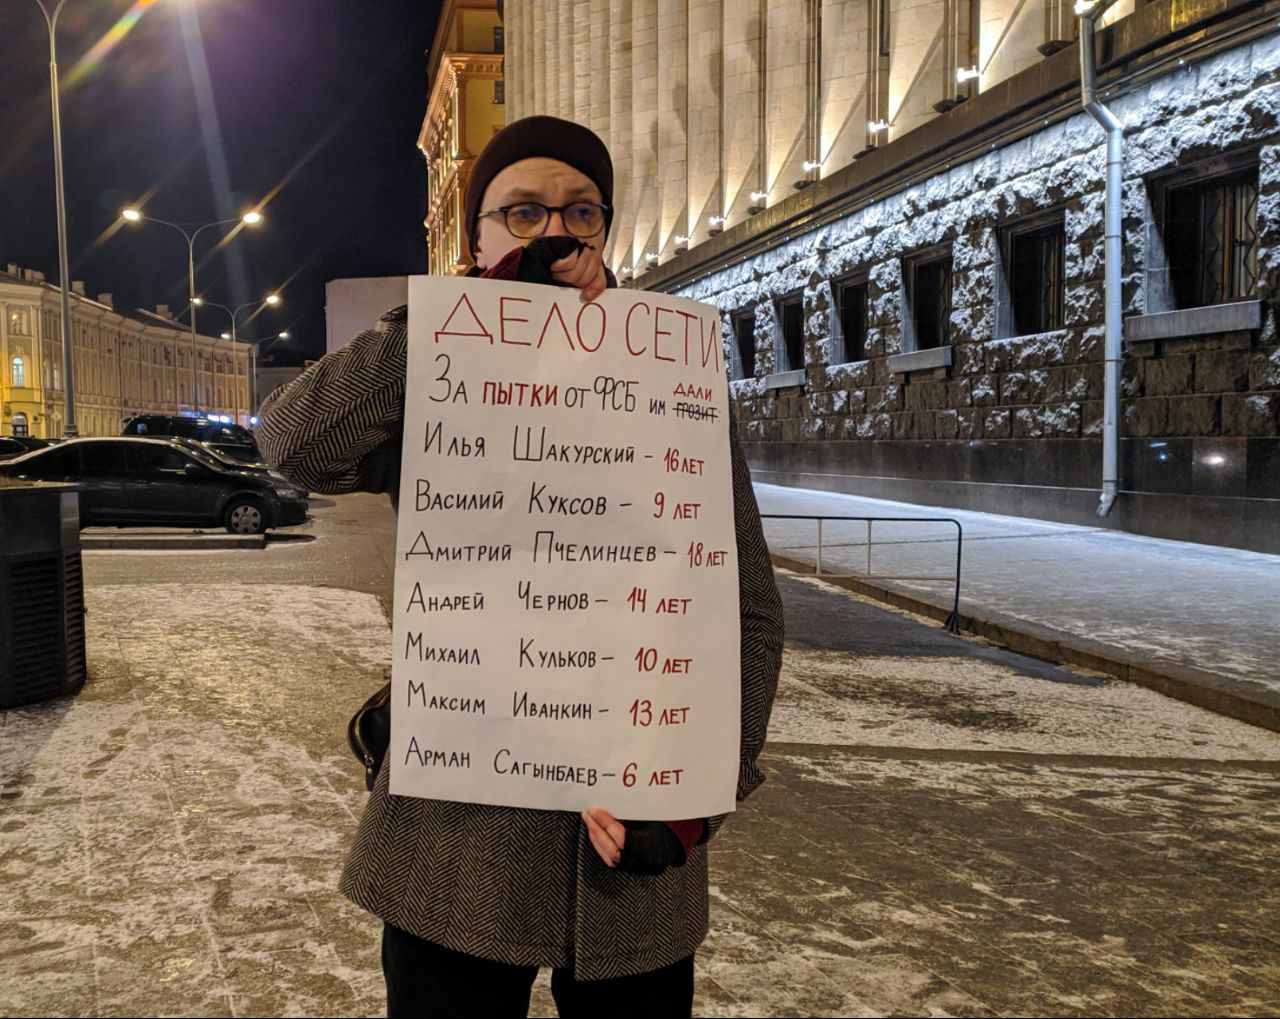 ДЕЛО СЕТИ
ЗА ПЫТКИ ОТ ФСБ ИМ ГРОЗИТ ДАЛИ
ИЛЬЯ ШАКУРСКИЙ - 16 ЛЕТ
ВАСИЛИЙ КУКСОВ - 9 ЛЕТ
ДМИТРИЙ ПЧЕЛИНЦЕВ - 18 ЛЕТ
АНДРЕЙ ЧЕРНОВ - 14 ЛЕТ
МИХАИЛ КУЛЬКОВ - 10 ЛЕТ
МАКСИМ ИВАНКИН - 13 ЛЕТ
АРМАН САГЫНБАЕВ - 6 ЛЕТ